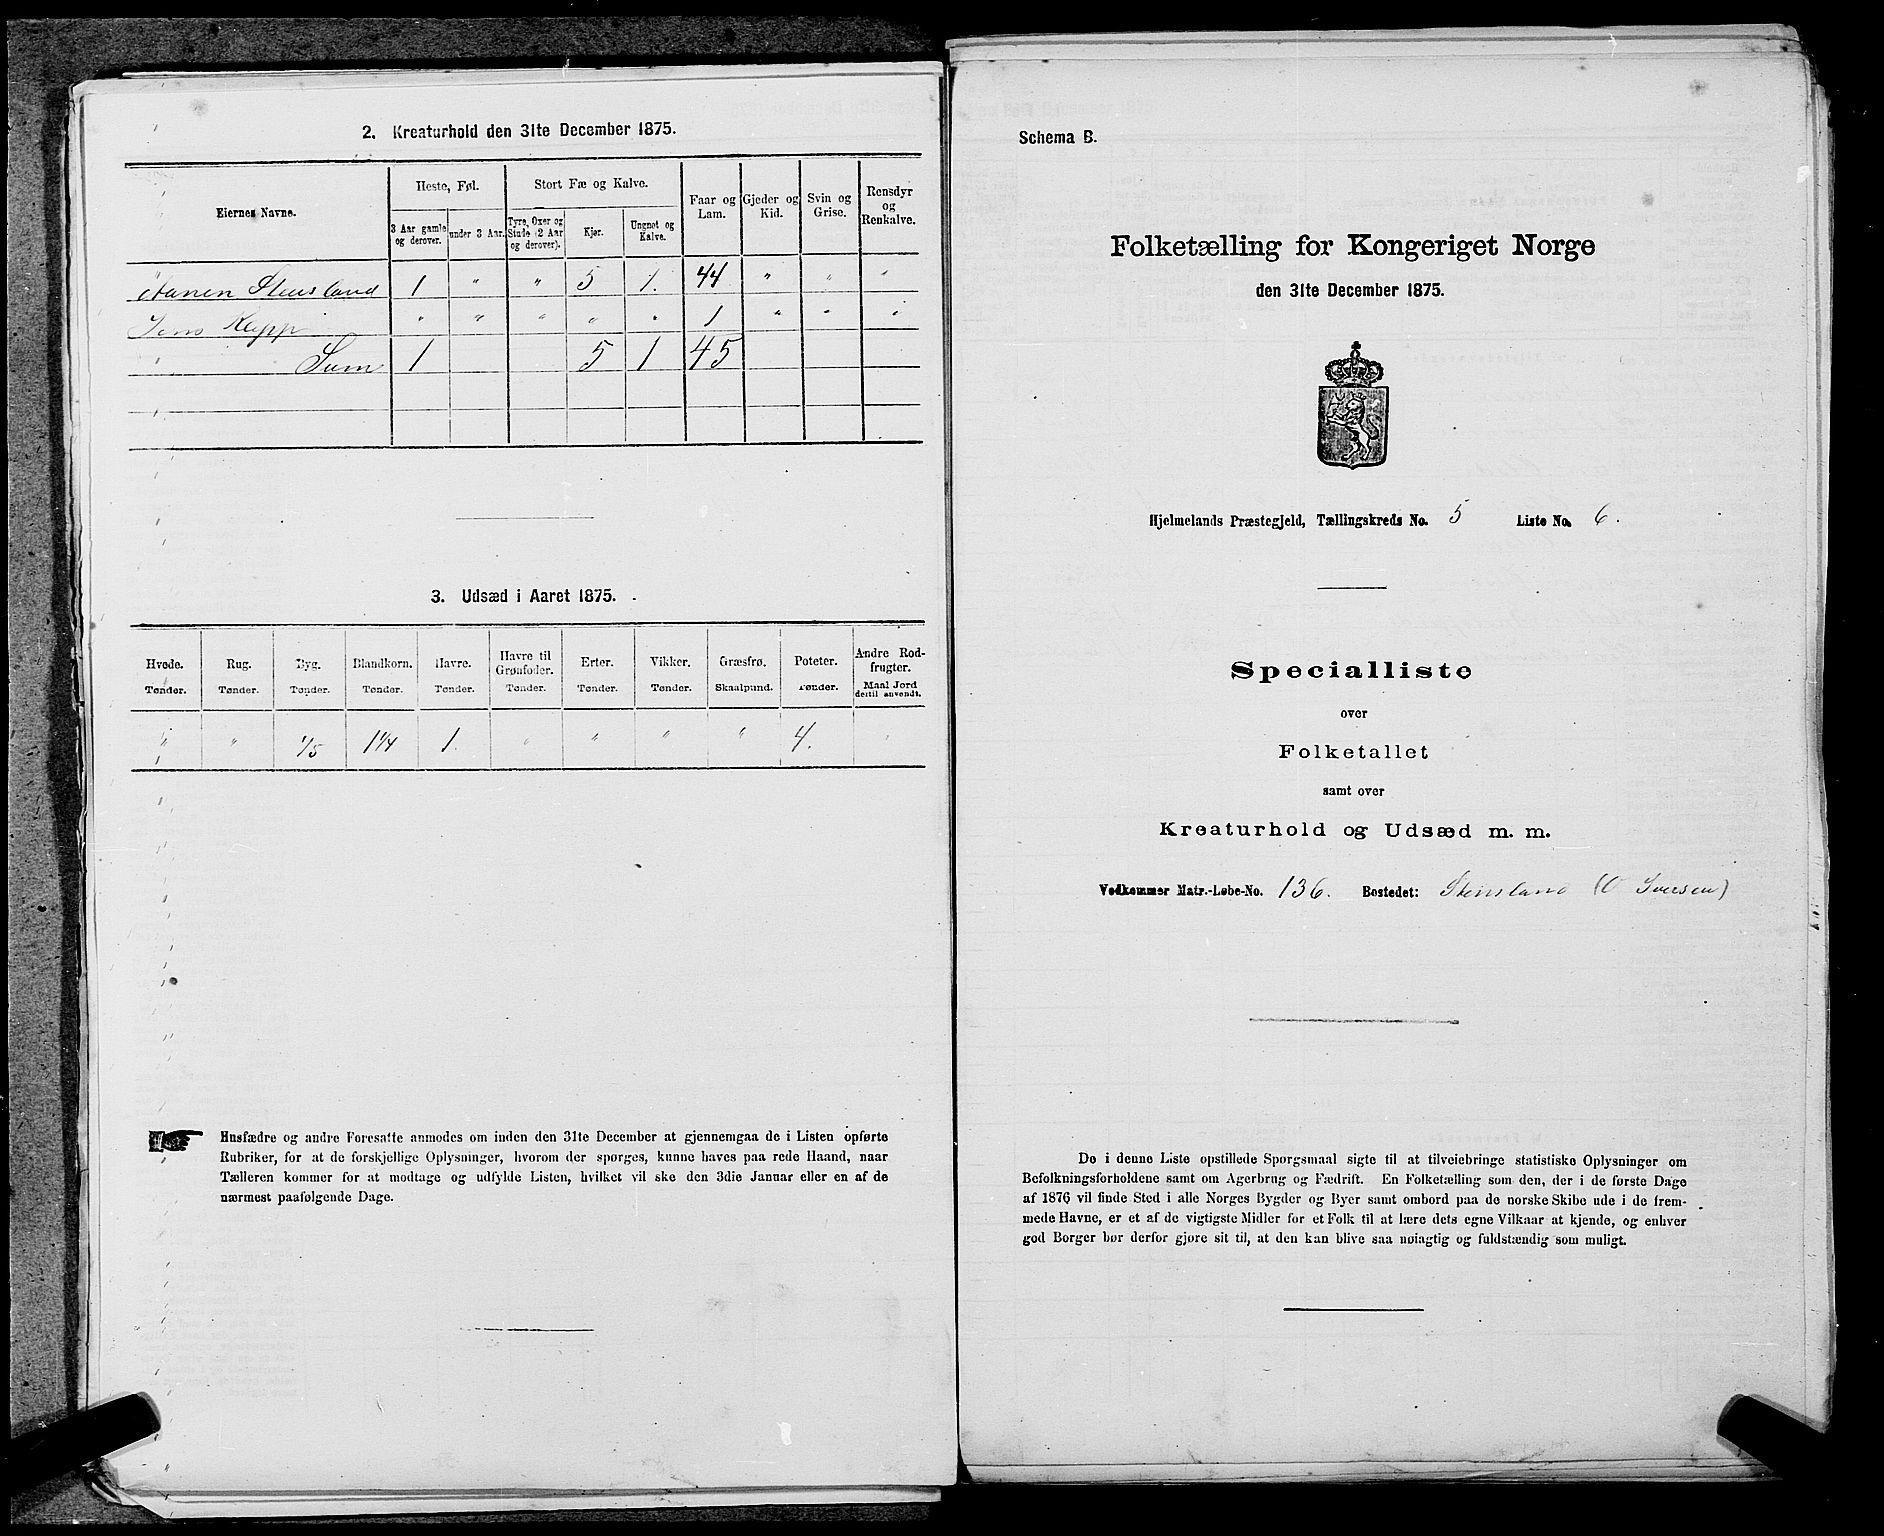 2. Kreaturhold den 31te December 1875.
Eiernes Navne.
Heste, Føl.
3 Aar gamle og derover.
under 3 Aar.
Stort Fæ og Kalve.
Tyre, Oxer og Stude (2 Aar og derover).
Kjør.
Ungnøt og Kalve.
Faar og Lam.
Gjeder og Kid.
Svin og Grise.
Rensdyr og Renkalve.
Stensland 1 " " 5 1. 44 " " "
Jens Klepp " " " " " 1 " " "
" Sum 1 5 1 45
3. Udsæd i Aaret 1875.
Hvede. Tønder.
Rug. Tønder.
Byg. Tønder.
Blandkorn. Tønder.
Havre. Tønder.
Havre til Grønfoder. Tønder.
Erter. Tønder.
Vikker. Tønder.
Græsfrø. Skaalpund.
Poteter. Tønder.
Andre Rodfrugter. Maal Jord dertil anvendt.
" " 1/5 1 1/4 1. " " " " 4. "
Husfædre og andre Foresatte anmodes om inden den 31te December at gjennemgaa de i Listen opførte
Rubriker, for at de forskjellige Oplysninger, hvorom der spørges, kunne haves paa rede Haand, naar
Tælleren kommer for at modtage og udfylde Listen, hvilket vil ske den 3die Januar eller en af de
nærmest paafølgende Dage.
Schema B.
Folketælling for Kongeriget Norge
den 31te December 1875.
Hjelmelands Præstegjeld, Tællingskreds No. 5 Liste No. 6.
Specialliste
over
Folketallet
samt over
Kreaturhold og Udsæd m. m.
Vedkommer Matr.-Løbe-No. 136. Bostedet: Stensland (O Iversen)
De i denne Liste opstillede Spørgsmaal sigte til at tilveiebringe statistiske Oplysninger om
Befolkningsforholdene samt om Agerbrug og Fædrift. En Folketælling som den, der i de første Dage
af 1876 vil finde Sted i alle Norges Bygder og Byer samt ombord paa de norske Skibe ude i de frem-
mede Havne, er et af de vigtigste Midler for et Folk til at lære dets egne Vilkaar at kjende, og enhver
god Borger bør derfor gjøre sit til, at den kan blive saa nøiagtig og fuldstændig som muligt.